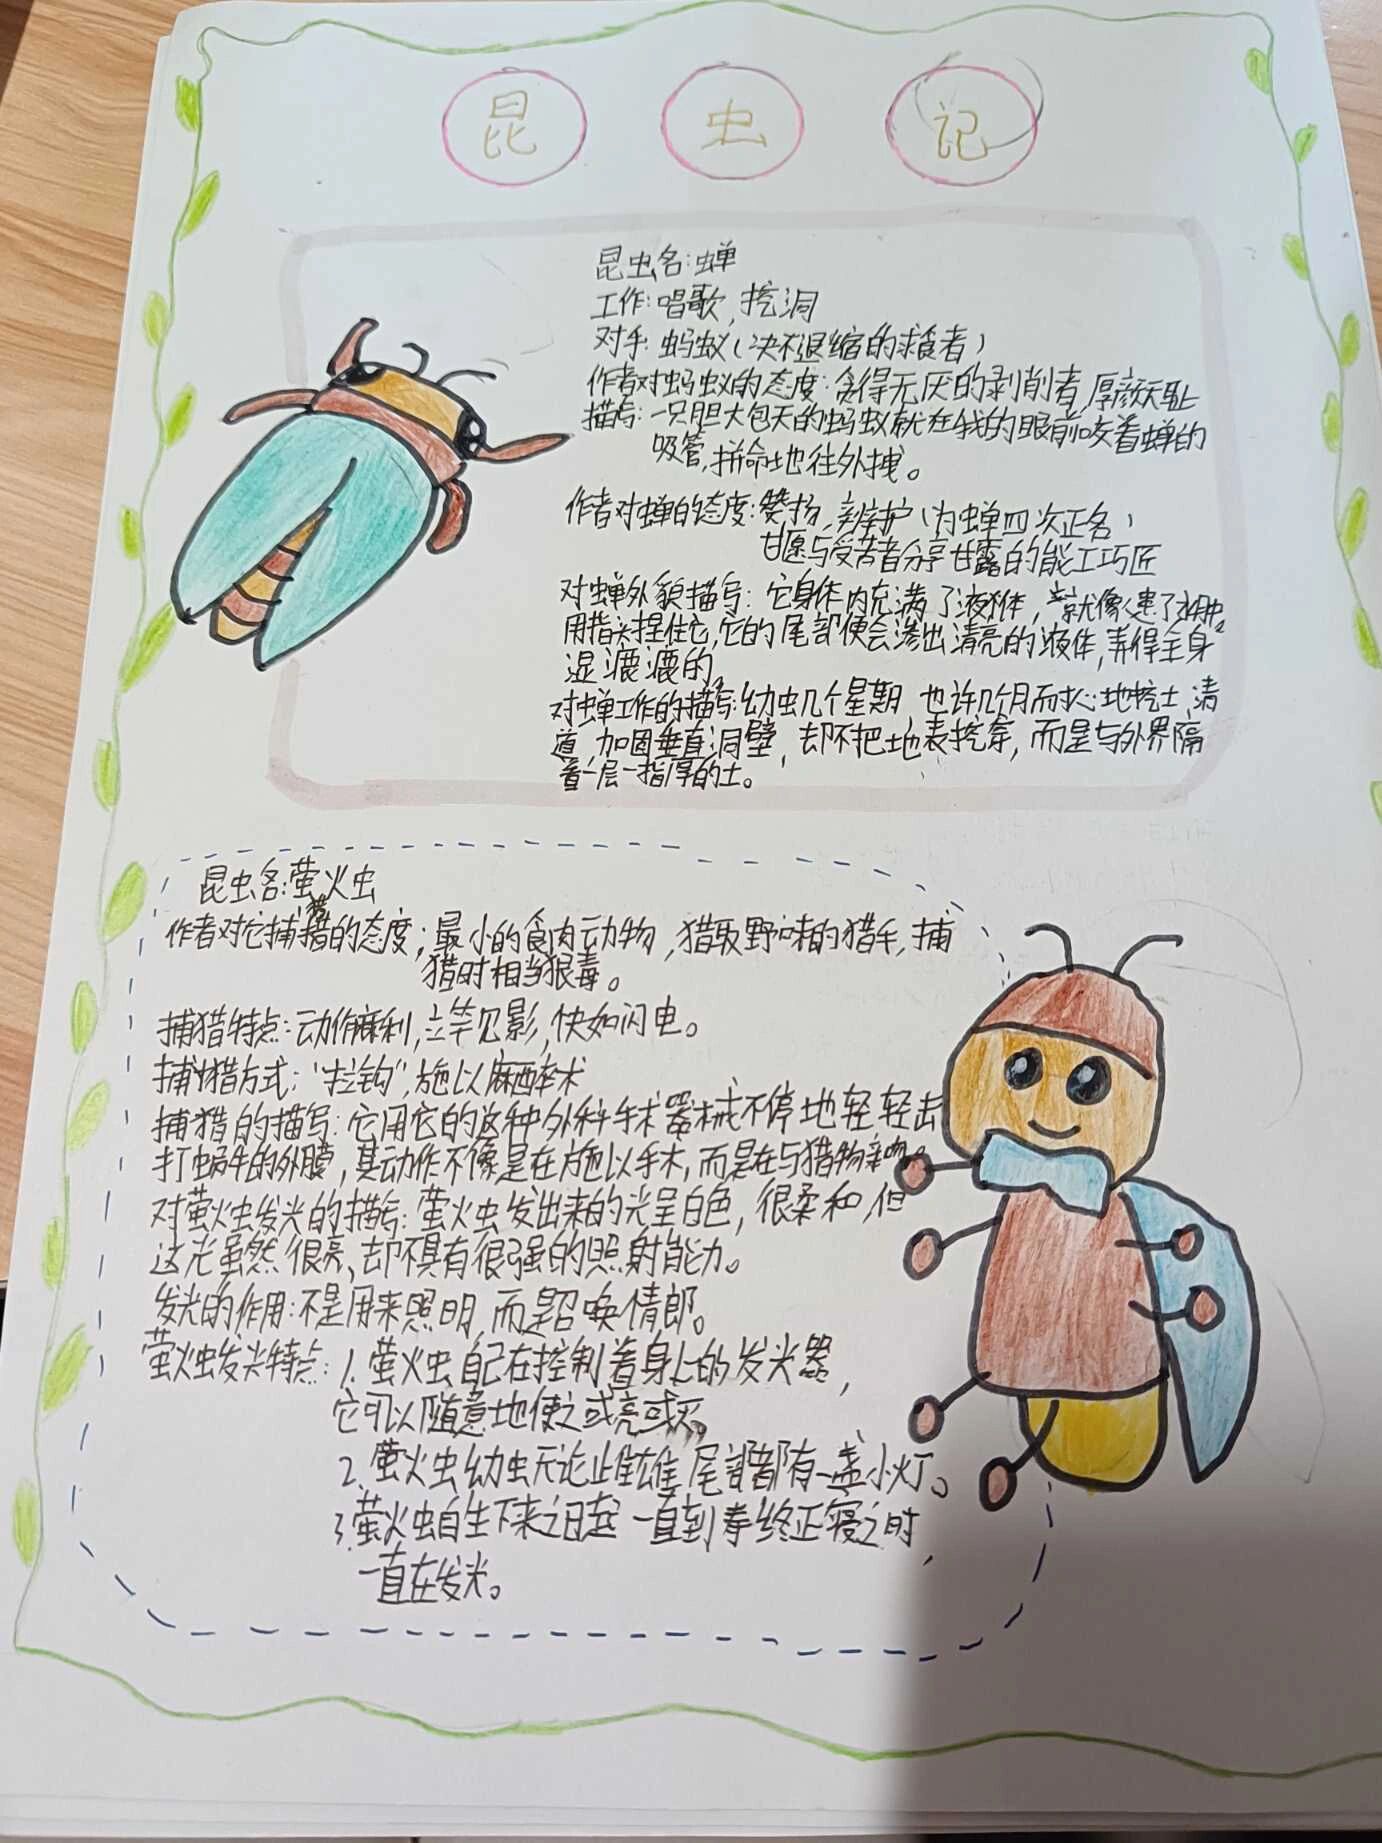 昆虫记
昆虫名:蝉
工作:唱歌,挖洞
对手:蚂蚁(决不退缩的求食者)
作者对蚂蚁的态度:贪得无厌的剥削者,厚颜无耻
描写:一只胆大包天的蚂蚁就在我的眼前咬着蝉的
吸管,拼命地往外拽。
作者对蝉的态度:赞扬,辩护(为蝉四次正名)
甘愿与受苦者分享甘露的能工巧匠
对蝉外貌描写:它身体内充满了液体,就像患了水肿。
用指头捏住它,它的尾部便会渗出清亮的液体,弄得全身
湿漉漉的。
对蝉工作的描写:幼虫几个星期 也许几个月耐心地挖土,清
道,加固垂直洞壁,却不把地表挖穿,而是与外界隔
着一层一指厚的土。
昆虫名:萤火虫
作者对它捕猎的态度:最小的食肉动物,猎取野味的猎手,捕
猎时相当狠毒。
捕猎特点:动作麻利,立竿见影,快如闪电。
捕猎方式:“拦钩”,施以麻醉术
捕猎的描写:它用它的这种外科手术器械不停地轻轻击
打蜗牛的外膜,其动作不像是在施以手术,而是在与猎物亲吻。
对萤火虫发光的描写:萤火虫发出来的光呈白色,很柔和,但
这光虽然很亮、却不具有很强的照射能力。
发光的作用:不是用来照明,而是召唤情郎。
萤火虫发光特点:1.萤火虫自己在控制着身上的发光器,
它可以随意地使之或亮或灭。
2.萤火虫幼虫无论雌雄,尾部都有一盏小灯。
3.萤火虫自生下来之日起一直到寿终正寝之时,
一直在发光。